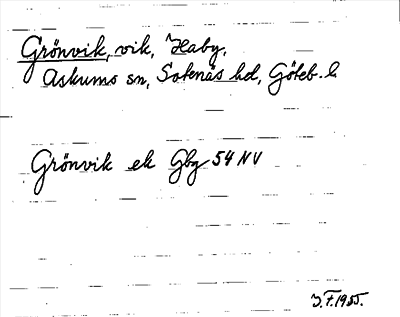 Grönvik, vik, Haby,
Askums sn, Sotenäs hd, Göteb. l
Grönvik ek Gbg 54 NV
J.F. 1955.